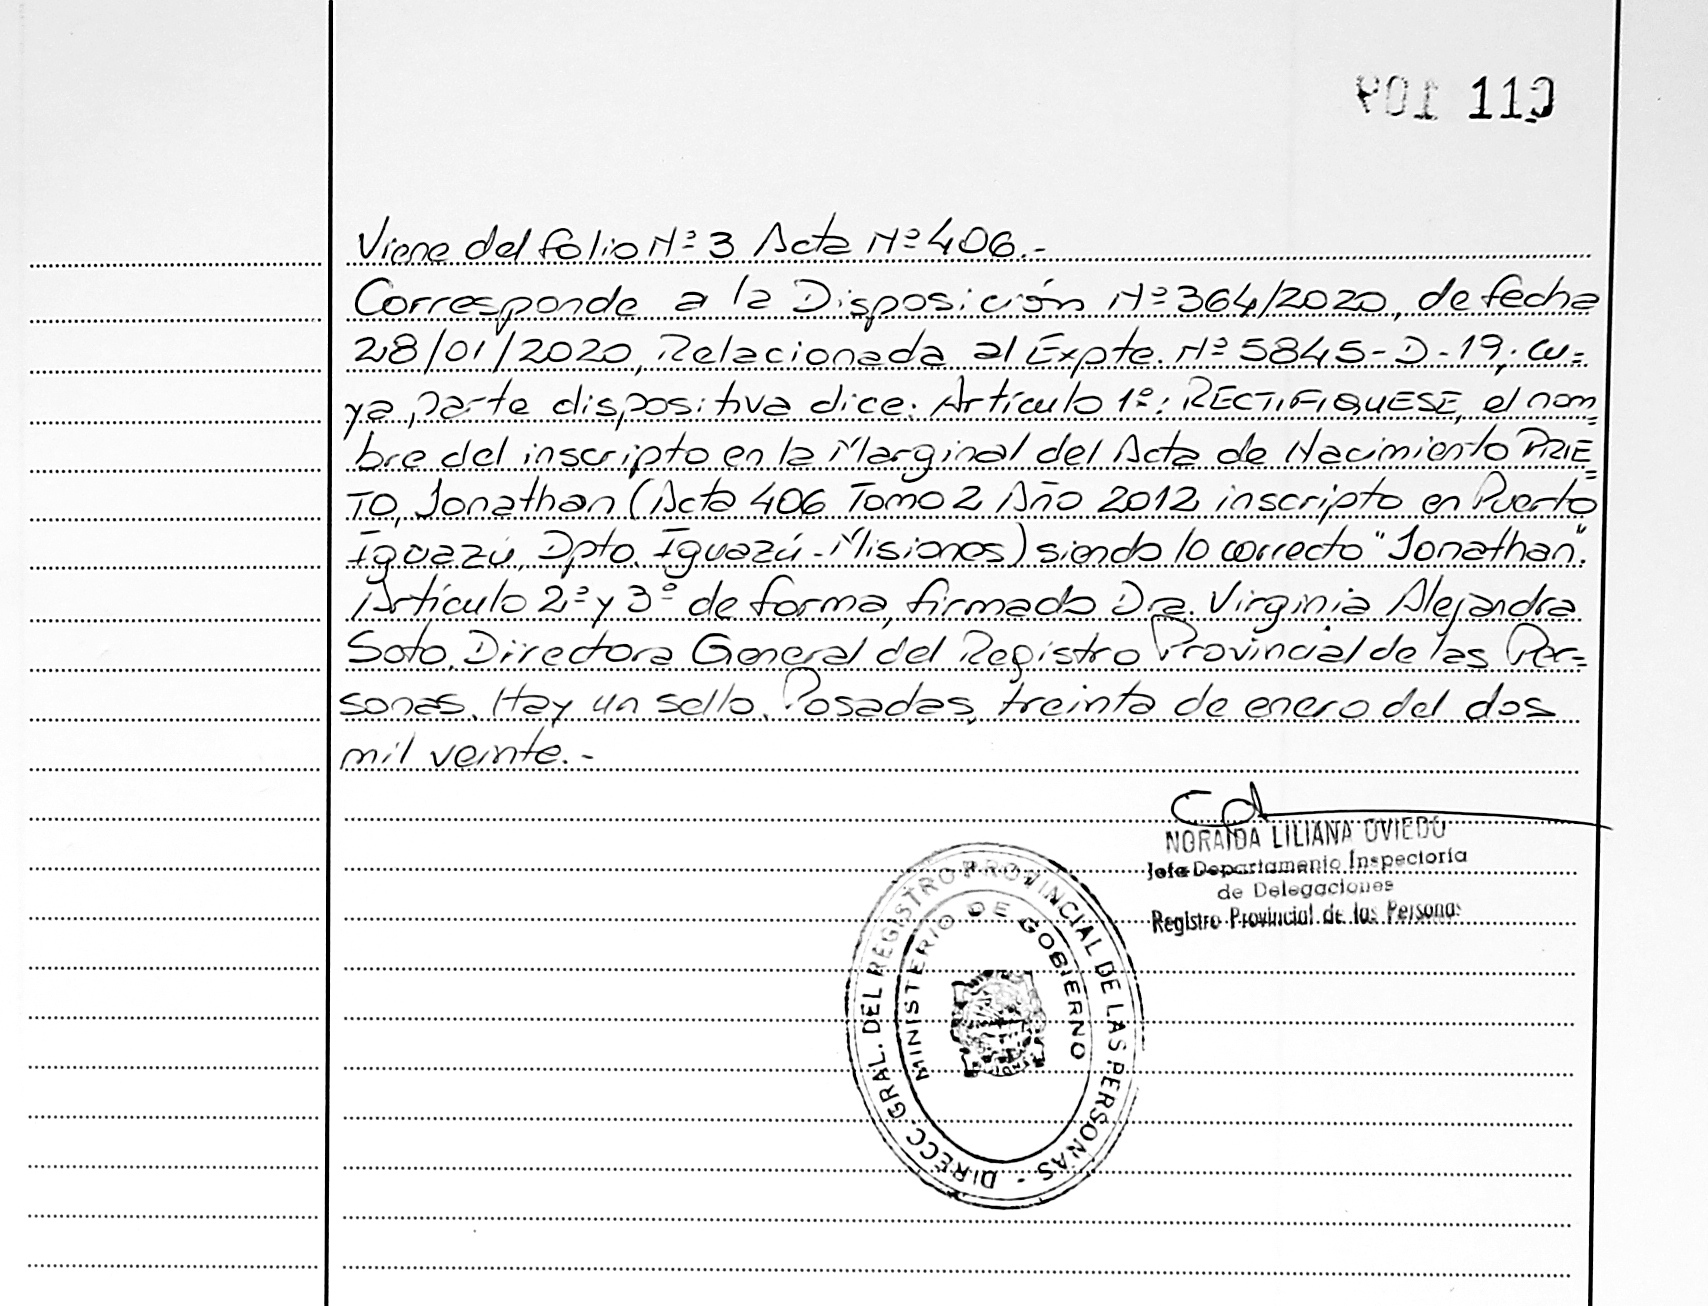 110
Viene del folio Nº 3 Acta Nº 406.-
Corresponde a la Disposición Nº 364/2020, de fecha
28/01/2020, Relacionada al Expte. Nº 5845-D-19, cu=
ya parte dispositiva dice: Artículo 1º: RECTIFIQUESE, el nom=
bre del inscripto en la Marginal del Acta de Nacimiento PRIE=
TO, Jonathan (Acta 406 Tomo 2 Año 2012 inscripto en Puerto
Iguazú, Dpto. Iguazú-Misiones) siendo lo correcto "Jonathan".
Artículo 2º y 3º de forma, firmado Dra. Virginia Alejandra
Soto. Directora General del Registro Provincial de las Per=
sonas. Hay un sello. Posadas, treinta de enero del dos
mil veinte.-
NORAIDA LILIANA OVIEDO
Jefe Departamento Inspectoría
de Delegaciones
Registro Provincial de las Personas
DIRECC. GRAL. DEL REGISTRO PROVINCIAL DE LAS PERSONAS -
MINISTERIO DE GOBIERNO